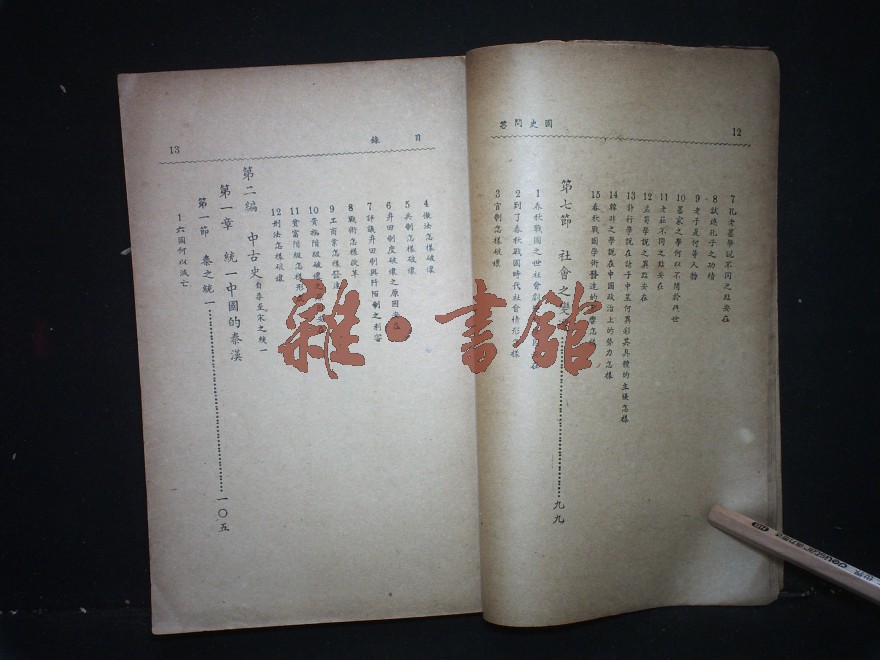 國史問答
12
7 孔老墨學說不同之點安在
8 試述孔子之功績
9 老子是何等人物
10 墨家之學何以不傳於後世
11 老莊不同之點安在
12 孟荀學說之異點安在
13 許行學說在諸子中呈何異彩其具體的主張怎樣
14 韓非之學說在中國政治上的勢力怎樣
15 春秋戰國學術發達的
第七節 社會之變
九九
1 春秋戰國之世社會
2 到了春秋戰國時代社會情形
樣
3 官制怎樣破壞
目錄
13
4 徹法怎樣破壞
5 兵制怎樣破壞
6 井田制度破壞之原因安在
7 評議井田制與阡陌制之利害
8 戰術怎樣改革
9 工商業怎樣發達
10 貴族階級破壞之
11 貧富階級怎樣形
12 刑法怎樣破壞
第二編 中古史 自秦至宋之統一
第一章 統一中國的秦漢
第一節 秦之統一 一〇五
1 六國何以滅亡
雜·書館